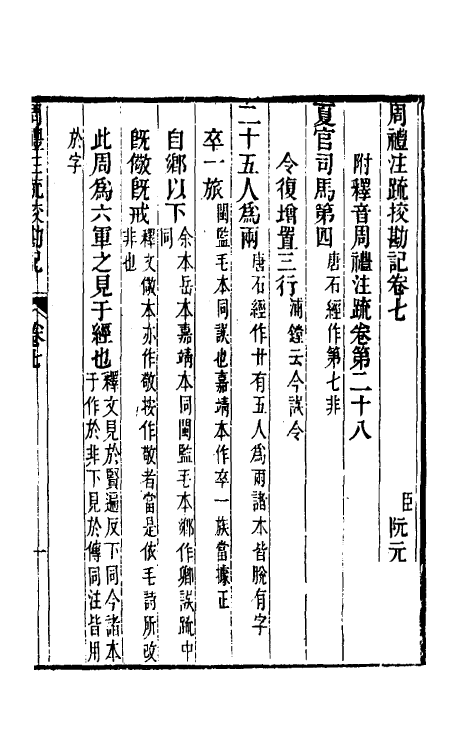 周禮注疏挍勘記卷七
臣阮元
附釋音周禮注疏卷第二十八
夏官司馬第四
唐石經作第七非
今復增置三行
浦鏜云今誤令
二十五人爲兩
唐石經作廿有五人爲兩諸本皆脫有字
卒一旅
閩監毛本同誤也嘉靖本作卒一族當據正
自鄉以下
余本岳本嘉靖本同閩監毛本鄉作卿誤疏中
同
既儆既戒
釋文儆本亦作敬按作敬者當是依毛詩所改
非也
此周爲六軍之見于經也
釋文見於賢遍反下同今諸本
于作於非下見於傳同注皆用
於字
周禮注疏挍勘記
卷七
一